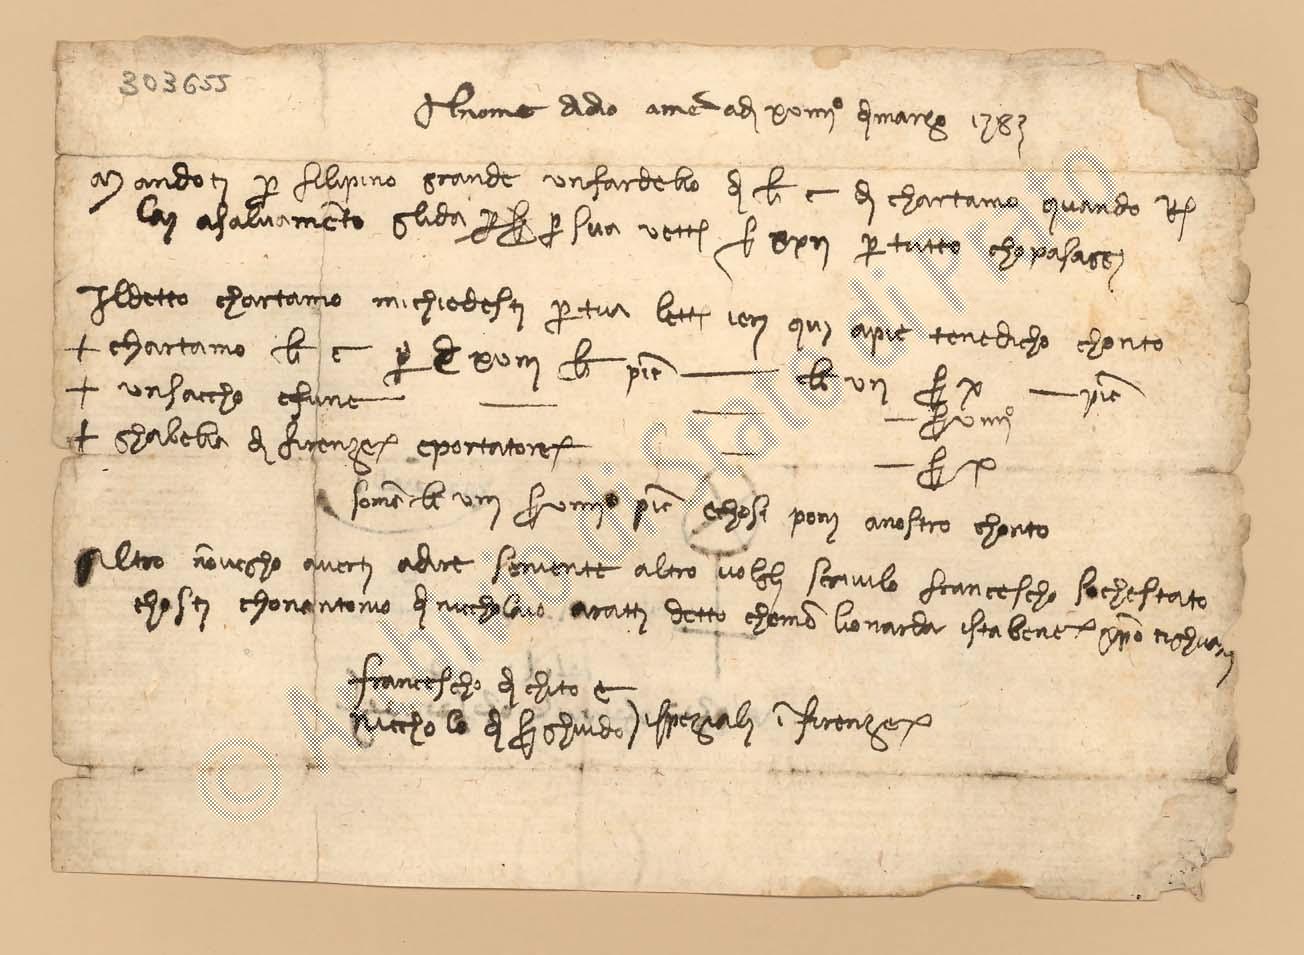 303655
Al nome di dio ame adi xviiiiº di marzo 1383
Mandoti per filipino grande unfardello di lb c di chartamo quando Rí
lai asalvamēto glida per sua vett s xii per tutto chopasaggi
Il detto chartamo michiedesti per tua lett ieri qui apie tenedicho chonto
+ chartamo lb c per d xviii lb pić — lb vii s x — pić
+ unsaccho efune — — — s viiiiº
+ ghabella di firenze eportatore — — s x
Som̄ lb viii s viiiiº pić echosi poni anostro chonto
Altro nōvegho averti adire senente altro volgli scrivilo francescho sochestato
chosti chonantonio di niccholaio aratti detto chomō lionarda istabene
francescho di chito e
niccholo di s ghuido ispeziali ī firenze
© Archivio di Stato di Prato